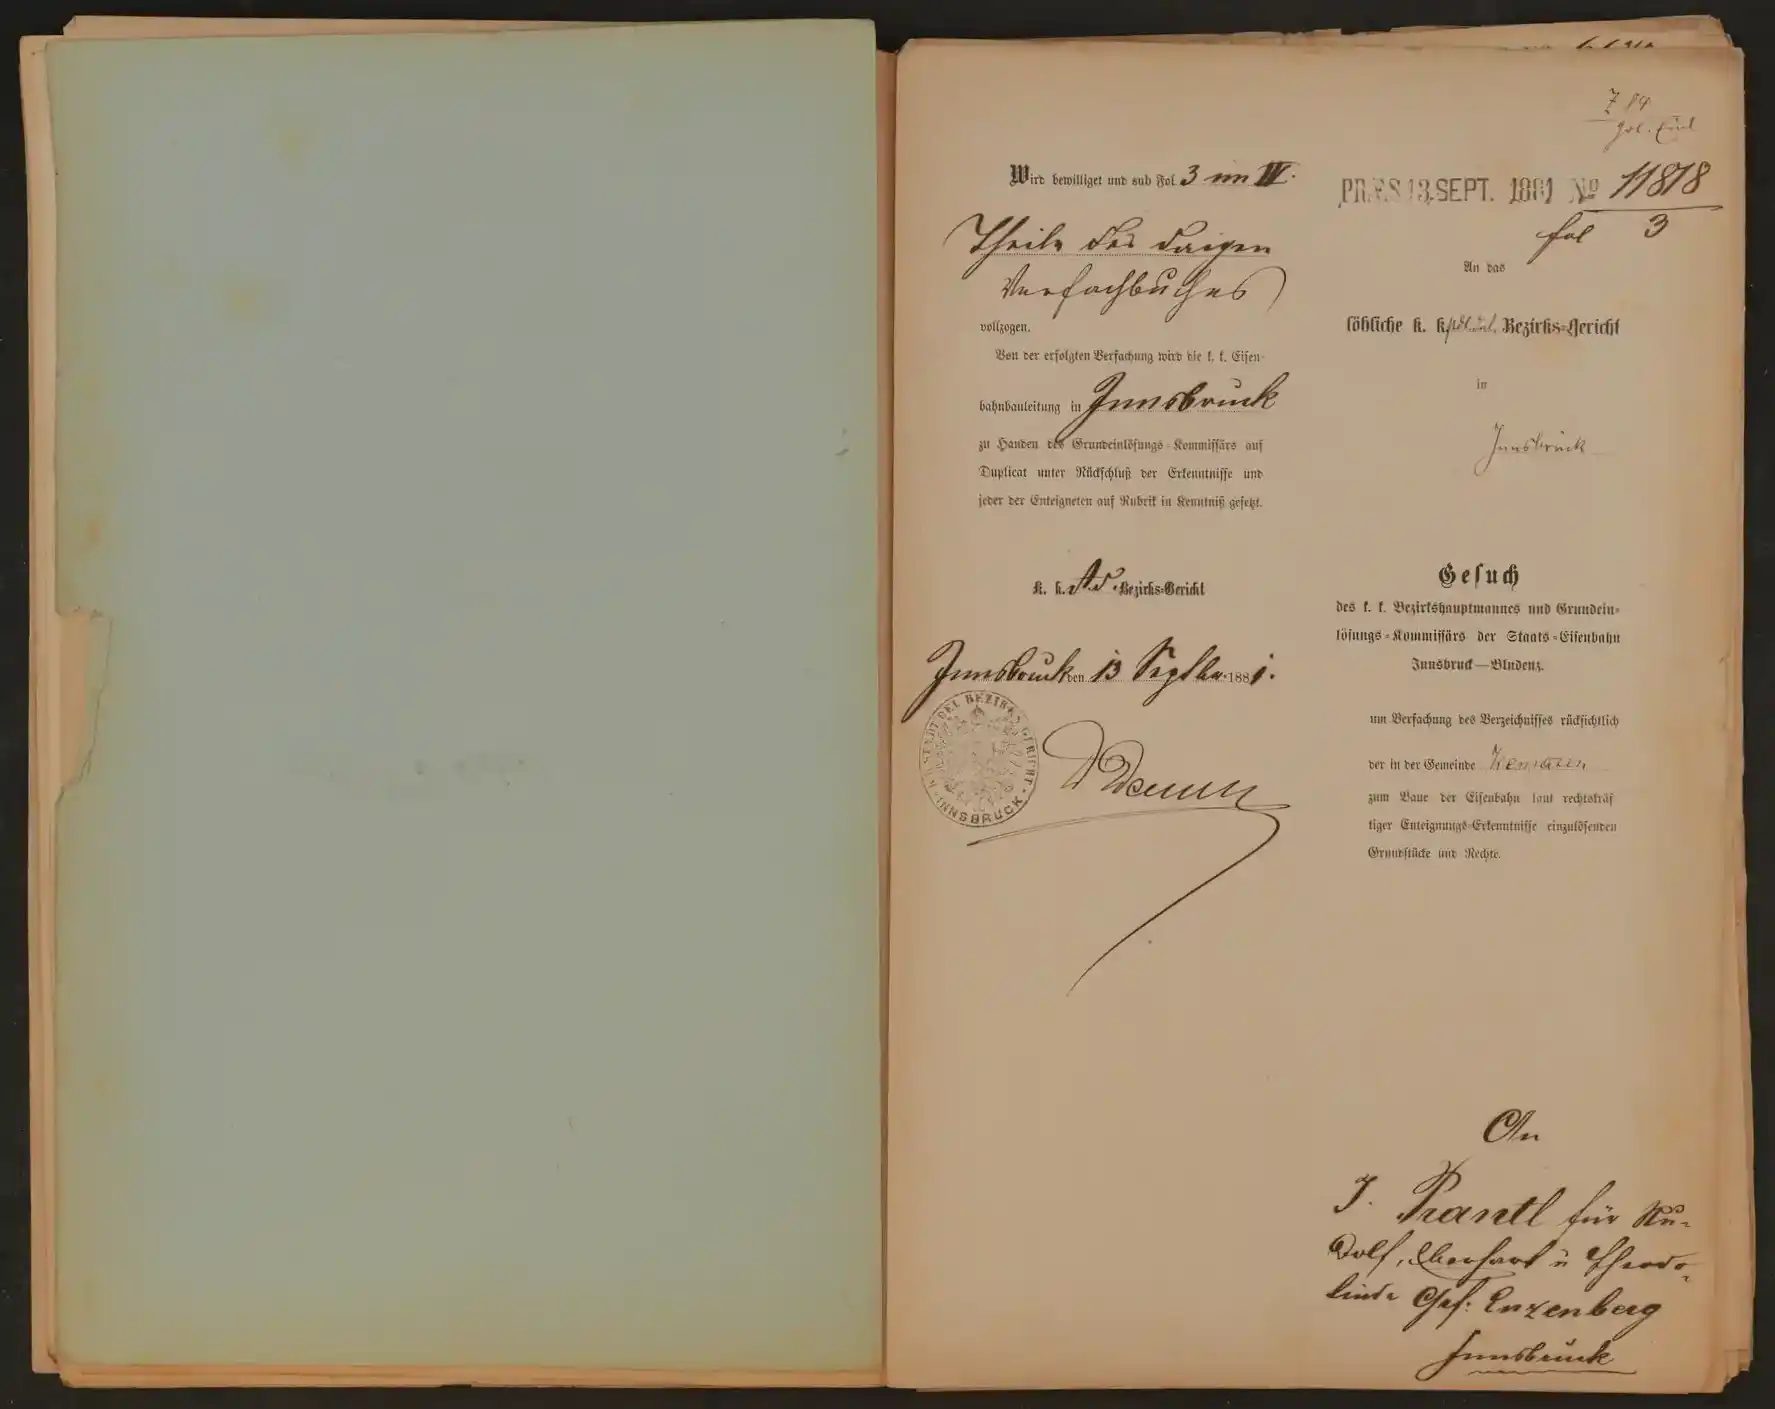 7 84
Wird bewilliget und sub Fol. 3 im IV.
Theile des dießgen
Verfachbuches
vollzogen.
Von der erfolgten Verfachung wird die k. k. Eisen-
bahnbauleitung in Innsbruck
zu Handen des Grundeinlösungs-Kommissärs auf
Duplicat unter Rückschluß der Erkenntnisse und
jeder der Enteigneten auf Rubrik in Kenntniß gesetzt.
K. k. st. d. Bezirks-Gericht
Innsbruck den 13 Septbr. 1881.
K. K. STÄDT. DEL. BEZIRKS GERICHT
INNSBRUCK
PRÆS 13. SEPT. 1881 No 11818
fol 3
An das
löbliche k. k. städt. del. Bezirks-Gericht
in
Innsbruck
Gesuch
des k. k. Bezirkshauptmannes und Grundein-
lösungs-Kommissärs der Staats-Eisenbahn
Innsbruck—Bludenz.
um Verfachung des Verzeichnisses rücksichtlich
der in der Gemeinde Kematen
zum Baue der Eisenbahn laut rechtskräf
tiger Enteignungs-Erkenntnisse einzulösenden
Grundstücke und Rechte.
An
J. Prantl für Ru-
dolf, Eberhart u Theodo-
linde Grf: Enzenberg
Innsbruck